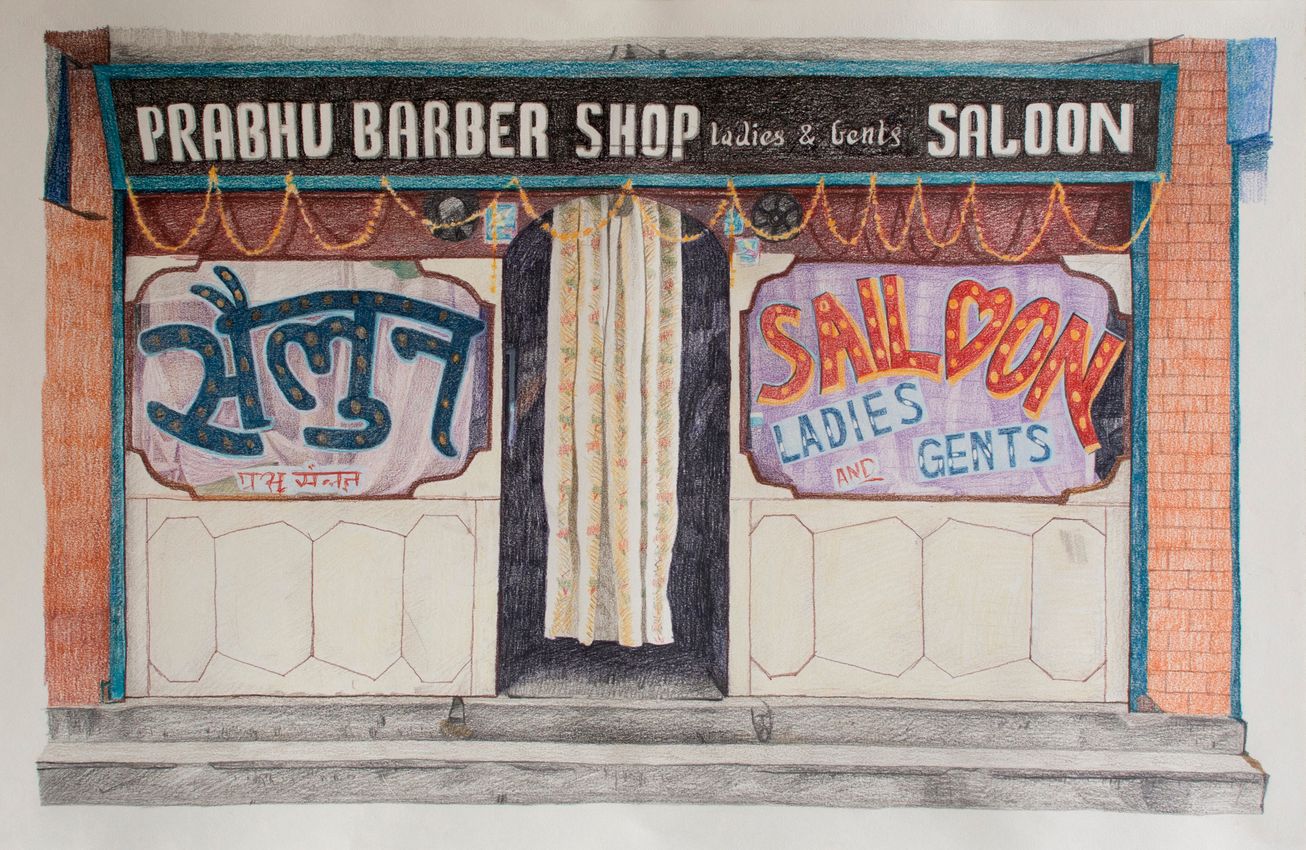 PRABHU BARBER SHOP ladies & Gents SALOON
सैलुन
SAILOON
LADIES
AND GENTS